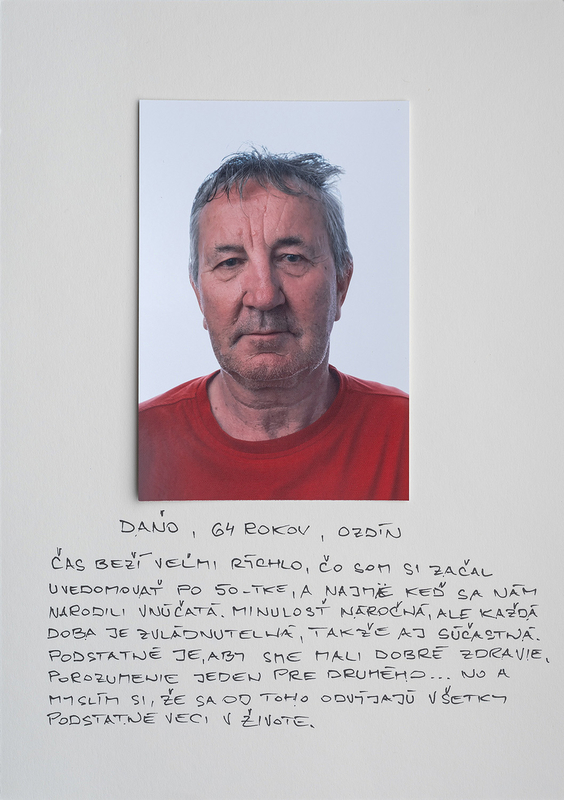 DAŇO, 64 ROKOV, OZDÍN
ČAS BEŽÍ VEĽMI RÝCHLO, ČO SOM SI ZAČAL
UVEDOMOVAŤ PO 50-TKE, A NAJMÄ KEĎ SA NÁM
NARODILI VNÚČATÁ. MINULOSŤ NÁROČNÁ, ALE KAŽDÁ
DOBA JE ZVLÁDNUTEĽNÁ, TAKŽE AJ SÚČASTNÁ.
PODSTATNÉ JE, ABY SME MALI DOBRÉ ZDRAVIE,
POROZUMENIE JEDEN PRE DRUHÉHO... NO A
MYSLÍM SI, ŽE SA OD TOHO ODVÍJAJÚ VŠETKY
PODSTATNÉ VECI V ŽIVOTE.